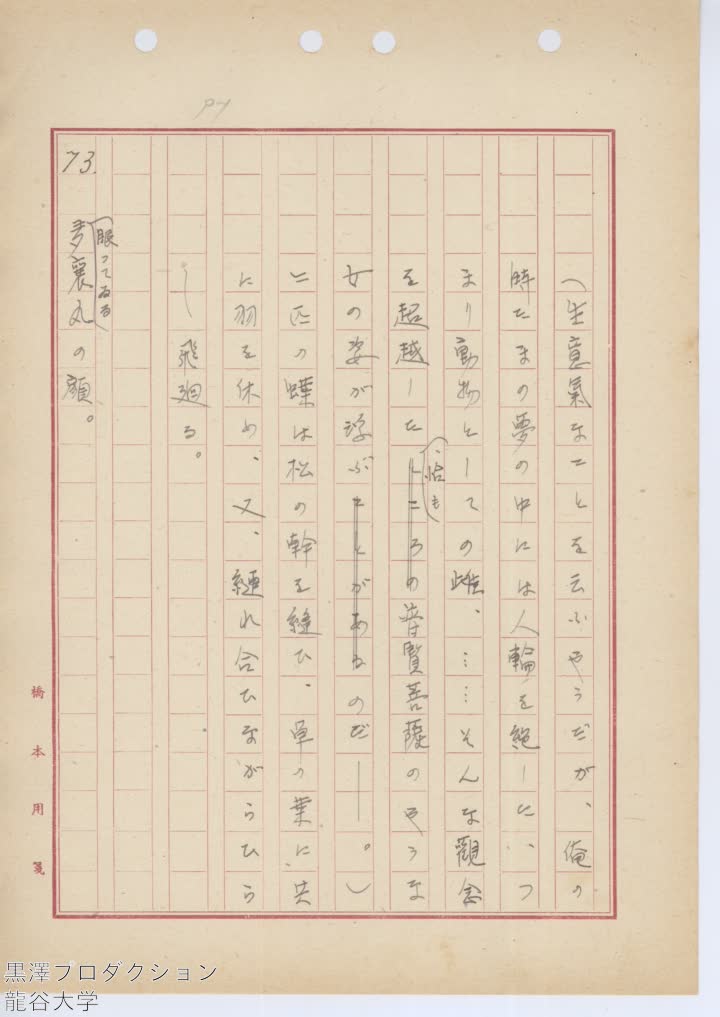 (生意氣なことを云ふやうだが、俺の
時たまの夢の中には人輪を絶した、つ
まり動物としての雌、……そんな觀念
を超越したところの普賢菩薩のやうな
、恰も
女の姿が浮ぶことがあるのだ――。)
二匹の蝶は松の幹を縫ひ、草の葉に共
に羽を休め、又、縺れ合ひながらひら
〳〵飛廻る。
73.
眠ってゐる
多襄丸の顔。
橋本用箋
黒澤プロダクション
龍谷大学